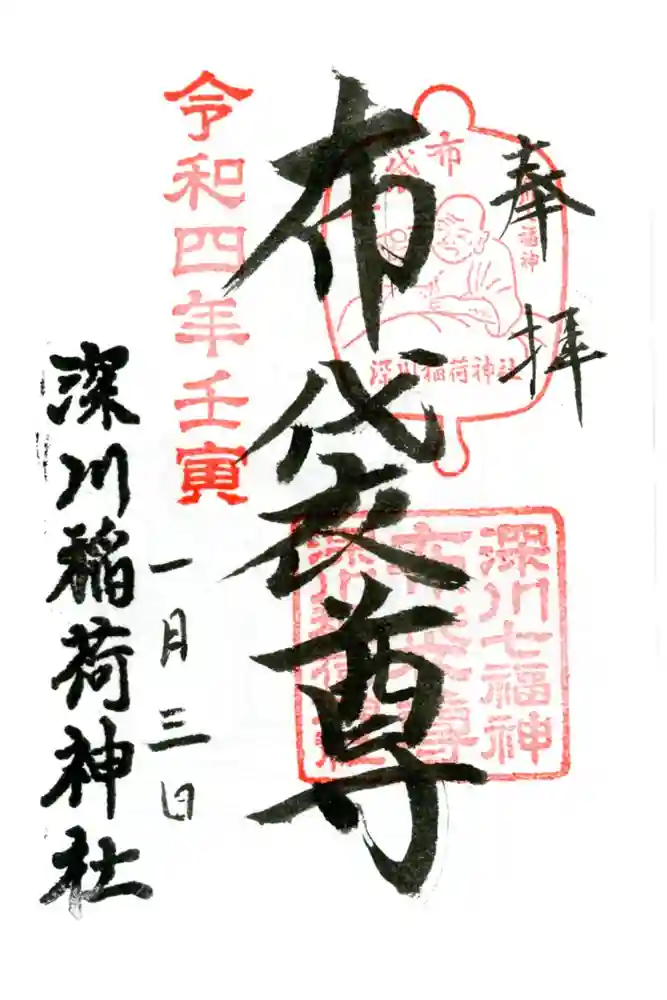 奉拝
布袋
深川稲荷神社
布袋尊
深川七福神
布袋尊
深川稲荷神社
令和四年壬寅
一月三日
深川稲荷神社